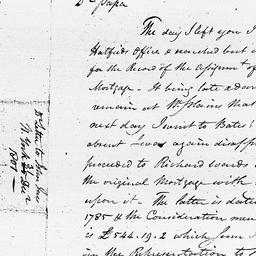 Dr Papa
The day I left you I
Hatfields Office & searched but c
for the Record of the Assignmt of
Mortgage. It being late & dar
remain at Wt Plains that
next day I went to Bates'
absent I was again disapp
proceeded to Richard wards
the original Mortgage with
upon it. The latter is dated
1785 & the Consideration men
is £544.19.2 which from
in the Representation to
Wm Letter to John Jay
N. York
1807